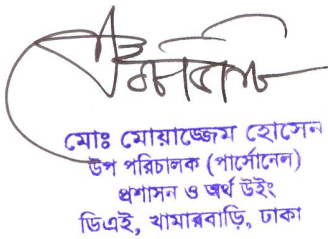 মোঃ মোয়াজ্জেম হোসেন
উপ পরিচালক (পার্সোনেল)
প্রশাসন ও অর্থ উইং
ডিএই, খামারবাড়ি, ঢাকা